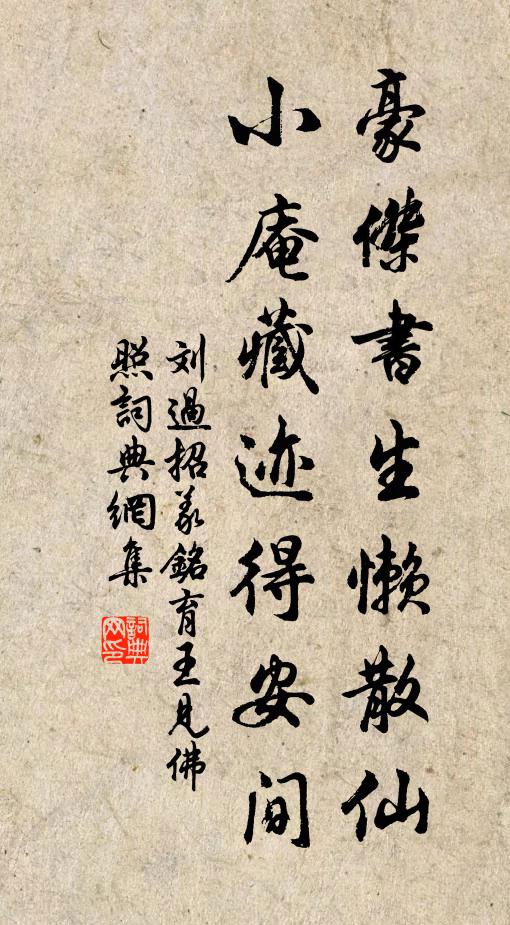 豪傑書生懶散仙
小庵藏迹得安閒
刘過招義銘育王見佛
照詞典網集
詞典網印